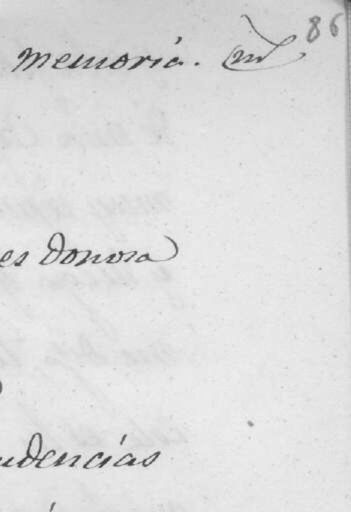 86
memoria.
es donosa
udencias